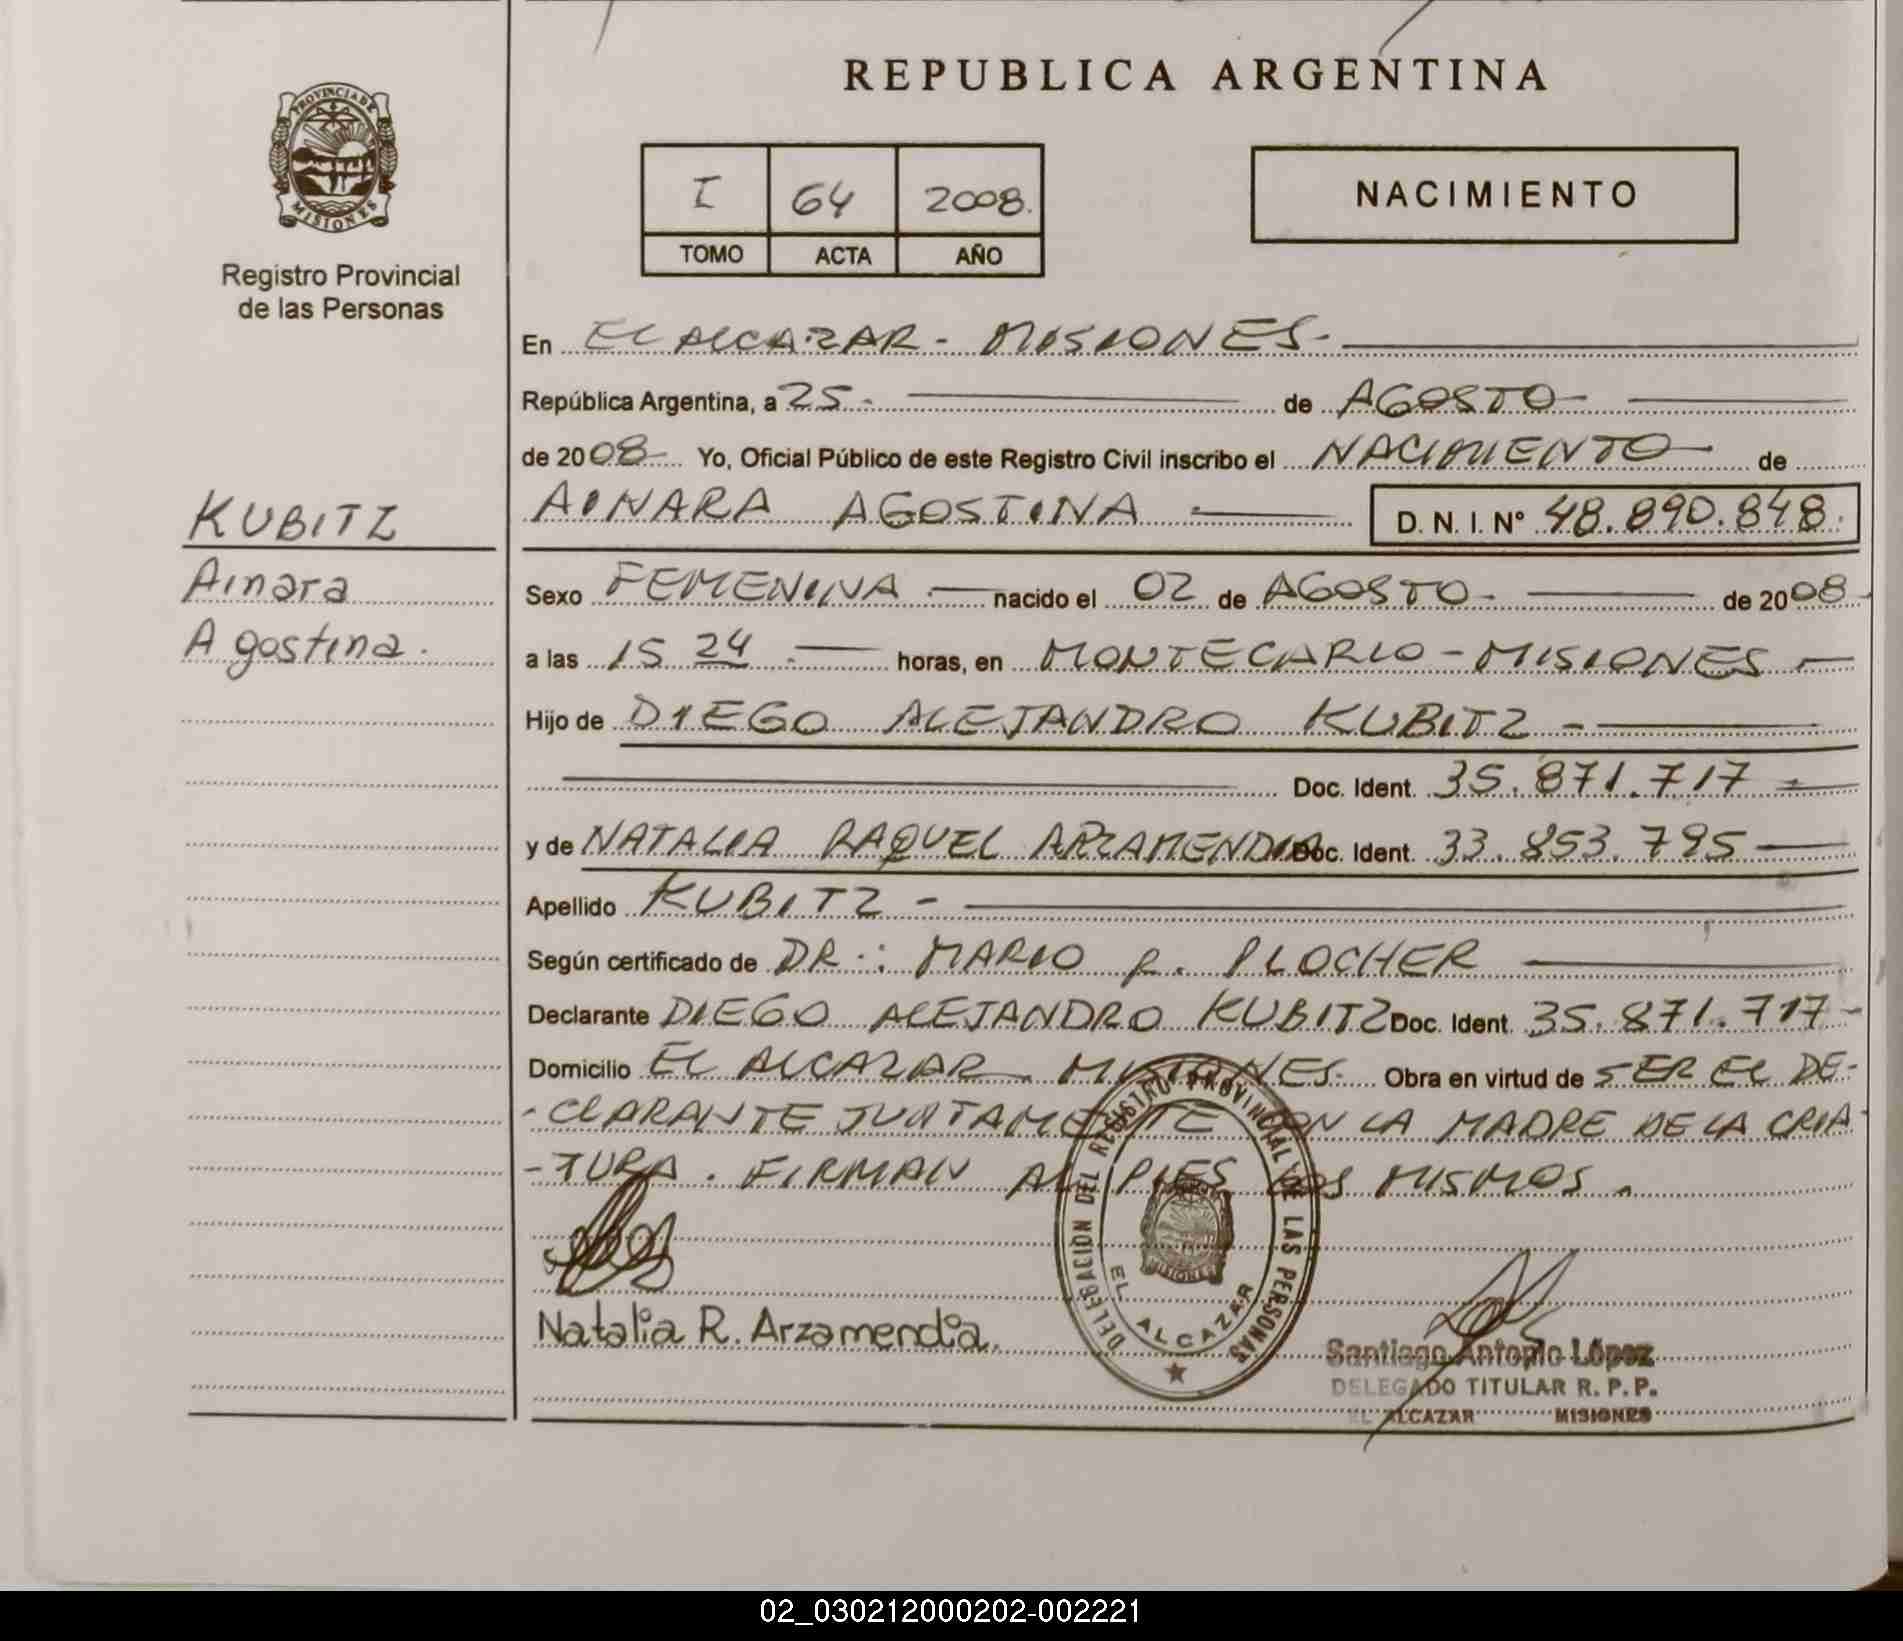 REPUBLICA ARGENTINA
PROVINCIA DE
MISIONES
Registro Provincial
de las Personas
I 64 2008.
TOMO ACTA AÑO
NACIMIENTO
En EL ALCAZAR - MISIONES -
República Argentina, a 25 - de AGOSTO -
de 2008 - Yo, Oficial Público de este Registro Civil inscribo el NACIMIENTO - de
AINARA AGOSTINA - D. N. I. N° 48.890.848.
KUBITZ
Ainara
Agostina.
Sexo FEMENINA - nacido el 02 de AGOSTO - de 2008 -
a las 15 24 - horas, en MONTECARLO - MISIONES -
Hijo de DIEGO ALEJANDRO KUBITZ -
Doc. Ident. 35.871.717 -
y de NATALIA RAQUEL ARZAMENDIA Doc. Ident. 33.853.795 -
Apellido KUBITZ -
Según certificado de DR.: MARIO R. PLOCHER
Declarante DIEGO ALEJANDRO KUBITZ Doc. Ident. 35.871.717 -
Domicilio EL ALCAZAR MISIONES. Obra en virtud de SER EL DE-
-CLARANTE JUNTAMENTE CON LA MADRE DE LA CRIA-
-TURA. FIRMAN AL PIES LOS MISMOS.
DELEGACION DEL REGISTRO PROVINCIAL DE LAS PERSONAS
MISIONES
EL ALCAZAR
Natalia R. Arzamendia.
Santiago Antonio López
DELEGADO TITULAR R. P. P.
EL ALCAZAR MISIONES
02_030212000202-002221